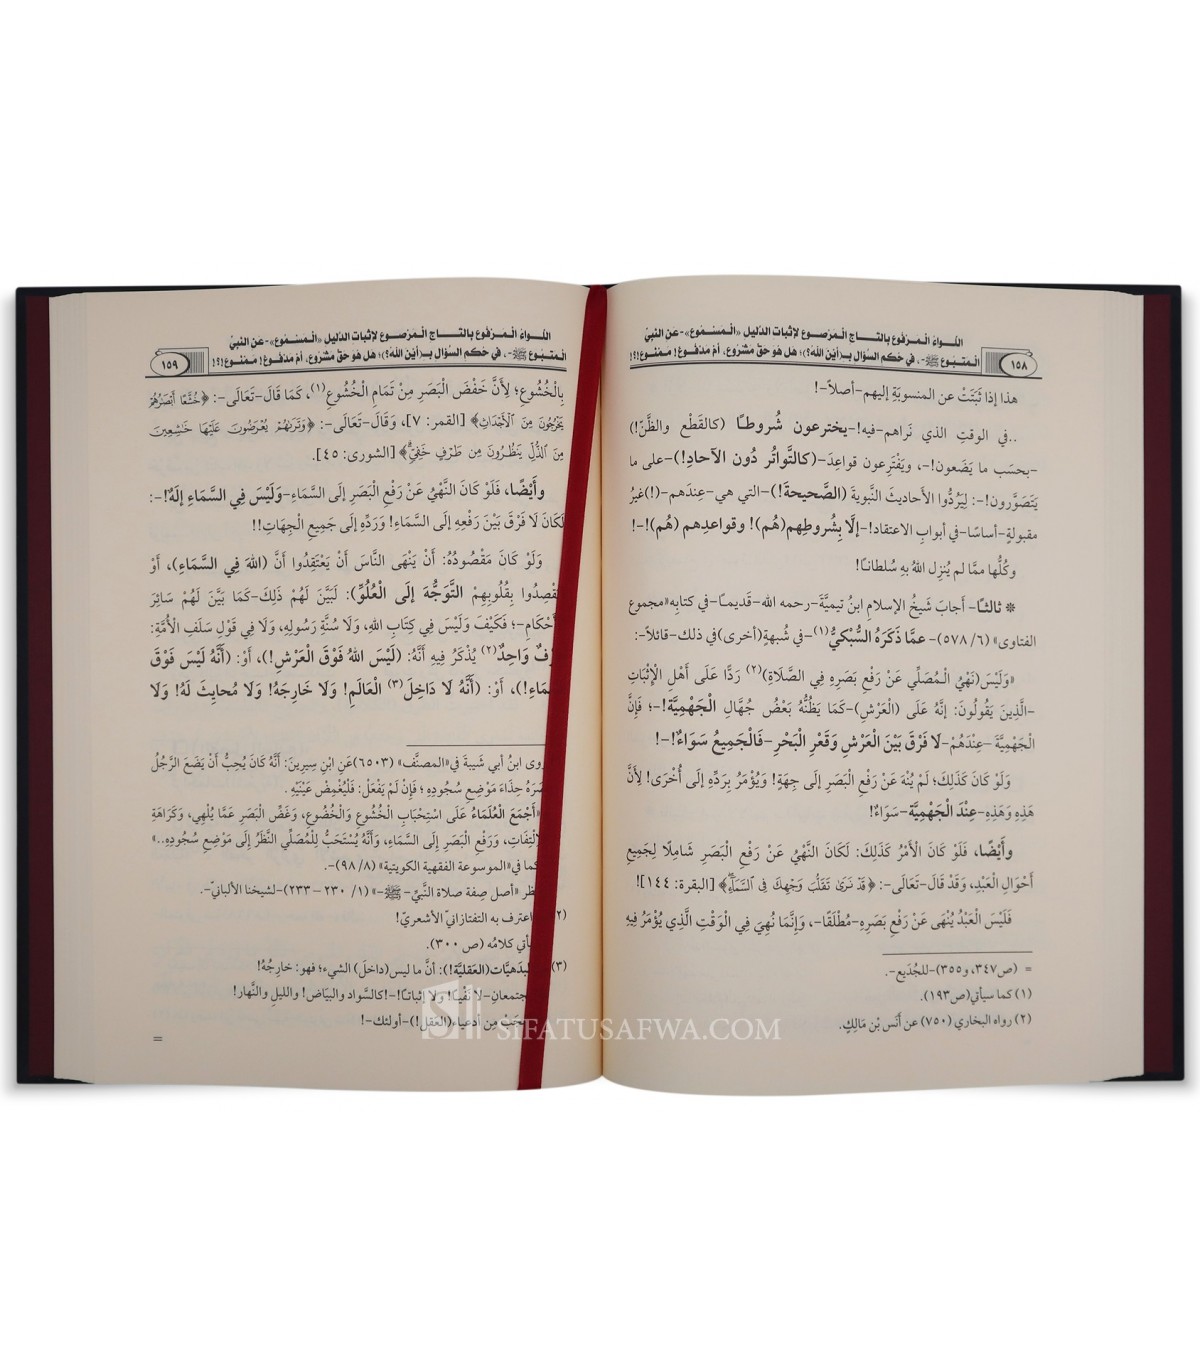 اللـواءُ الـمَـرْفُوع بالتــاج الـمَرْصـوع لإثبات الدّليل «الـمَسْمُوع»-عن النبيّ
الـمَتبُوع ﷺ-، في حكم السُّؤال بـ(أيْن الله؟)؛ هل هُو حَقّ مَشْرُوع، أمْ مَدفُـوعٌ! ممنُـوعٌ!(؟!
١٥٨
هذا إذا ثَبَتَتْ عن المنسوبَةِ إليهم-أصلاً-!
..في الوقتِ الذي نَراهم-فيه!-يخترعون شُروطًـا (كالقَطْع والظَّنّ!)
-بحسَب ما يَضَعون!-، ويَفْتَرِعون قواعِدَ-(كالتَّواتُر دُون الآحادِ!)-على ما
يَتَصَوَّرون!-: لِيَرُدُّوا الأحاديثَ النَّبويةَ (الصَّحيحةَ!)-التي هي-عِندَهم-(!)غيرُ
مقبولةٍ-أساسًا-في أبوابِ الاعتقاد!-إلَّا بِشُروطِهم(هُم)! وقواعدِهم (هُم)!-!
وكُلُّها ممَّا لم يُنزِل اللهُ بهِ سُلطانًـا!
* ثالثًـا- أجابَ شَيخُ الإسلامِ ابنُ تيميَّةَ-رحمه الله-قَديمًـا-في كتابِه«مجموع
الفتاوى» (٦/ ٥٧٨)- عمَّا ذَكَرَهُ السُّبْكيُّ(١)-في شُبهةٍ(أخرى)في ذلك-قائلاً-:
«وَلَيْسَ(نَهْيُ الـمُصَلِّي عَنْ رَفْعِ بَصَرِهِ فِي الصَّلَاةِ)(٢) رَدًّا عَلَى أَهْلِ الإِثْبَاتِ
-الَّذِينَ يَقُولُونَ: إنَّهُ عَلَى (الْعَرْشِ)-كَمَا يَظُنُّهُ بَعْضُ جُهَّالِ الْجَهْمِيَّةِ!-؛ فَإِنَّ
الْجَهْمِيَّةَ -عِنْدَهُمْ-لَا فَرْقَ بَيْنَ الْعَرْشِ وَقَعْرِ الْبَحْرِ-فَالْجَمِيعُ سَوَاءٌ!-!
وَلَوْ كَانَ كَذَلِكَ؛ لَمْ يُنْهَ عَنْ رَفْعِ الْبَصَرِ إلَى جِهَةٍ! وَيُؤْمَرُ بِرَدِّهِ إلَى أُخْرَى! لِأَنَّ
هَذِهِ وَهَذِهِ-عِنْدَ الْجَهْمِيَّةِ-سَوَاءٌ!
وأَيْضًا، فَلَوْ كَانَ الْأَمْرُ كَذَلِكَ: لَكَانَ النَّهْيُ عَنْ رَفْعِ الْبَصَرِ شَامِلًا لِجَمِيعِ
أَحْوَالِ الْعَبْدِ، وَقَدْ قَالَ-تَعَالَى-: ﴿قَدْ نَرَىٰ تَقَلُّبَ وَجْهِكَ فِي السَّمَاءِ﴾ [البقرة: ١٤٤]!
فَلَيْسَ الْعَبْدُ يُنْهَى عَنْ رَفْعِ بَصَرِهِ-مُطْلَقًا-، وَإِنَّمَا نُهِيَ فِي الْوَقْتِ الَّذِي يُؤْمَرُ فِيهِ
= (ص٣٤٧، و٣٥٥)-للجُدَيع-.
(١) كما سيأتي(ص١٩٣).
(٢) رواه البخاري (٧٥٠) عن أَنَس بْن مَالِكٍ.
اللـواءُ الـمَـرْفُوع بالتــاج الـمَرْصـوع لإثبات الدّليل «الـمَسْمُوع»-عن النبيّ
الـمَتبُوع ﷺ-، في حكم السُّؤال بـ(أيْن الله؟)؛ هل هُو حَقّ مَشْرُوع، أمْ مَدفُـوعٌ! ممنُـوعٌ!(؟!
١٥٩
بِالْخُشُوعِ؛ لِأَنَّ خَفْضَ الْبَصَرِ مِنْ تَمَامِ الْخُشُوعِ(١)، كَمَا قَالَ-تَعَالَى-: ﴿خُشَّعًا أَبْصَارُهُمْ
يَخْرُجُونَ مِنَ الْأَجْدَاثِ﴾ [القمر: ٧]، وَقَالَ-تَعَالَى-: ﴿وَتَرَاهُمْ يُعْرَضُونَ عَلَيْهَا خَاشِعِينَ
مِنَ الذُّلِّ يَنْظُرُونَ مِنْ طَرْفٍ خَفِيٍّ﴾ [الشورى: ٤٥].
وأَيْضًا، فَلَوْ كَانَ النَّهْيُ عَنْ رَفْعِ الْبَصَرِ إلَى السَّمَاءِ-وَلَيْسَ فِي السَّمَاءِ إلَهٌ!-:
لَكَانَ لَا فَرْقَ بَيْنَ رَفْعِهِ إلَى السَّمَاءِ! وَرَدِّهِ إلَى جَمِيعِ الْجِهَاتِ!!
وَلَوْ كَانَ مَقْصُودُهُ: أَنْ يَنْهَى النَّاسَ أَنْ يَعْتَقِدُوا أَنَّ (اللهَ فِي السَّمَاءِ)، أَوْ
قْصِدُوا بِقُلُوبِهِمْ التَّوَجُّهَ إلَى الْعُلُوِّ): لَبَيَّنَ لَهُمْ ذَلِكَ-كَمَا بَيَّنَ لَهُمْ سَائِرَ
أَحْكَامِ-؛ فَكَيْفَ وَلَيْسَ فِي كِتَابِ اللهِ، وَلَا سُنَّةِ رَسُولِهِ، وَلَا فِي قَوْلِ سَلَفِ الْأُمَّةِ:
رْفٌ وَاحِدٌ(٢) يُذْكَرُ فِيهِ أَنَّهُ: (لَيْسَ اللهُ فَوْقَ الْعَرْشِ!)، أَوْ: (أَنَّهُ لَيْسَ فَوْقَ
مَاءِ!)، أَوْ: (أَنَّهُ لَا دَاخِلَ(٣) الْعَالَمِ! وَلَا خَارِجَهُ! وَلَا مُحايِثَ لَهُ! وَلَا
وى ابنُ أبي شَيبة في«المصنَّف» (٦٥٠٣)عَنِ ابْنِ سِيرِينَ: أَنَّهُ كَانَ يُحِبُّ أَنْ يَضَعَ الرَّجُلُ
صَرَهُ حِذَاءَ مَوْضِعِ سُجُودِهِ؛ فَإِنْ لَمْ يَفْعَلْ: فَلْيُغْمِضْ عَيْنَيْهِ.
«أَجْمَعَ الْعُلَمَاءُ عَلَى اسْتِحْبَابِ الْخُشُوعِ وَالْخُضُوعِ، وَغَضِّ الْبَصَرِ عَمَّا يُلْهِي، وَكَرَاهَةِ
لِالْتِفَاتِ، وَرَفْعِ الْبَصَرِ إلَى السَّمَاءِ، وَأَنَّهُ يُسْتَحَبُّ لِلْمُصَلِّي النَّظَرُ إلَى مَوْضِعِ سُجُودِهِ..»
كما في«الموسوعة الفقهية الكويتية» (٨/ ٩٨)-.
ظر «أصل صِفة صلاة النَّبيّ- ﷺ-» (١/ ٢٣٠ – ٢٣٣)-لشيخنا الألبانيّ-.
(٢) اعترف به التفتازانيّ الأشعريّ!
يأتي كلامُه (ص ٣٠٠).
(٣) لبدَهيَّات(العَقليَّة!): أنَّ ما ليس(داخلَ) الشيء؛ فهو: خارِجُهُ!
جتمعانِ-لا نَفْيًـا! ولا إثباتًـا!-!كالسَّواد والبيَاض! والليل والنَّهار!
عجَبْ مِن أدعياء(العَقل!)-أولئك-!
=
SIFATUSAFWA.COM